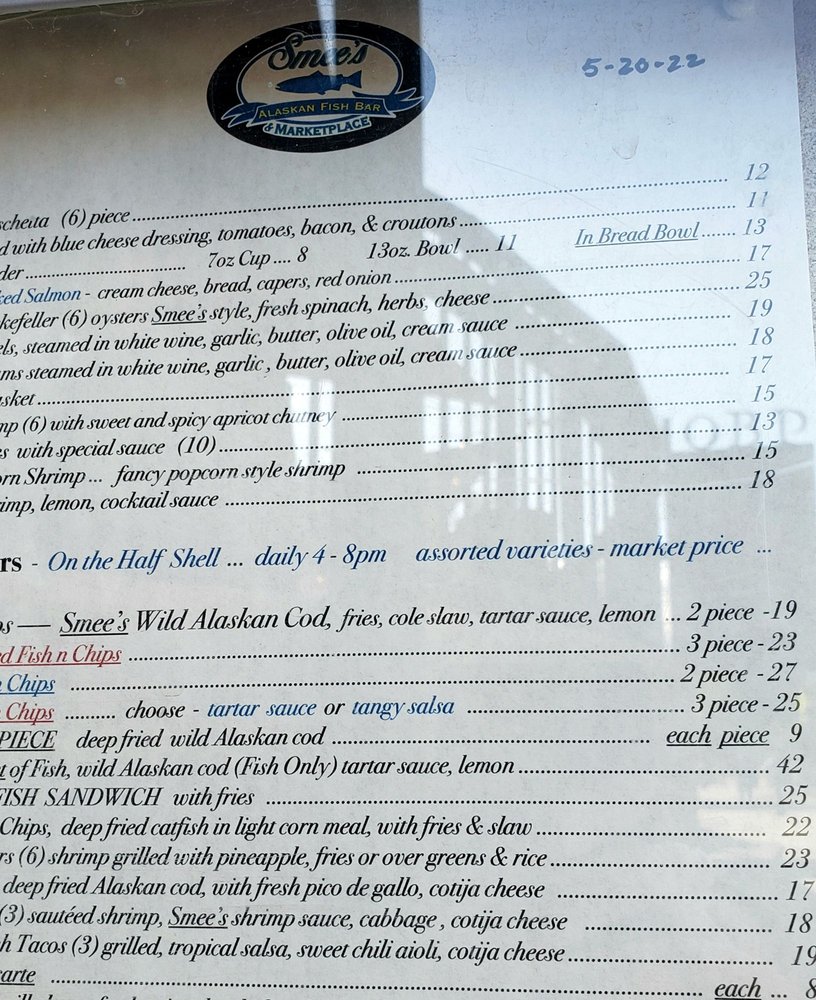 Smee's
ALASKAN FISH BAR
& MARKETPLACE
5-20-22
(6) piece ... 12
with blue cheese dressing, tomatoes, bacon, & croutons ... 11
7oz Cup .... 8 13oz. Bowl ..... 11 In Bread Bowl ....... 13
Salmon - cream cheese, bread, capers, red onion ... 17
(6) oysters Smee's style, fresh spinach, herbs, cheese ... 25
steamed in white wine, garlic, butter, olive oil, cream sauce ... 19
steamed in white wine, garlic, butter, olive oil, cream sauce ... 18
... 17
(6) with sweet and spicy apricot chutney ... 15
with special sauce (10) ... 13
Shrimp ... fancy popcorn style shrimp ... 15
lemon, cocktail sauce ... 18
- On the Half Shell ... daily 4 - 8pm assorted varieties - market price ...
— Smee's Wild Alaskan Cod, fries, cole slaw, tartar sauce, lemon ... 2 piece -19
Fish n Chips ... 3 piece - 23
Chips ... 2 piece - 27
Chips ......... choose - tartar sauce or tangy salsa ... 3 piece - 25
PIECE deep fried wild Alaskan cod ... each piece 9
of Fish, wild Alaskan cod (Fish Only) tartar sauce, lemon ... 42
FISH SANDWICH with fries ... 25
Chips, deep fried catfish in light corn meal, with fries & slaw ... 22
(6) shrimp grilled with pineapple, fries or over greens & rice ... 23
deep fried Alaskan cod, with fresh pico de gallo, cotija cheese ... 17
(3) sautéed shrimp, Smee's shrimp sauce, cabbage, cotija cheese ... 18
Tacos (3) grilled, tropical salsa, sweet chili aioli, cotija cheese ... 19
... each ... 8